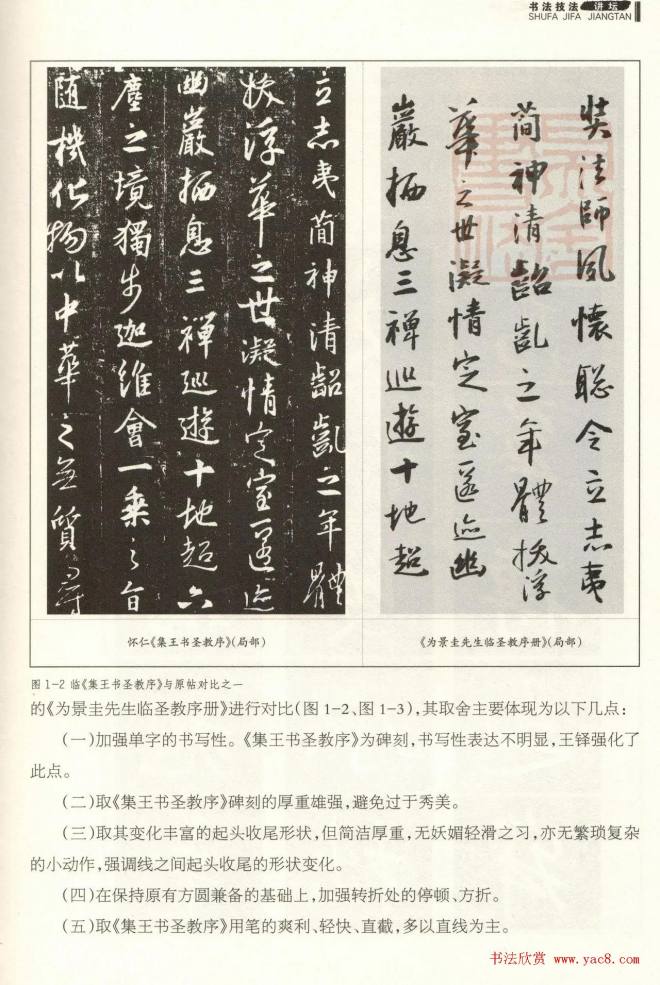 书法技法 讲坛
SHUFA JIFA JIANGTAN
立志夷簡神清齠齔之年體
拔浮華之世凝情定室匿迹
幽巖栖息三禪巡遊十地超六
塵之境獨步迦維會一乘之旨
随機化物以中華之無質尋
奘法師夙懷聡令立志夷
簡神清齠齔之年體拔浮
華之世凝情定室匿迹幽
巖栖息三禪巡遊十地超
怀仁《集王书圣教序》(局部)
《为景圭先生临圣教序册》(局部)
图 1-2 临《集王书圣教序》与原帖对比之一
的《为景圭先生临圣教序册》进行对比(图 1-2、图 1-3),其取舍主要体现为以下几点:
(一)加强单字的书写性。《集王书圣教序》为碑刻,书写性表达不明显,王铎强化了
此点。
(二)取《集王书圣教序》碑刻的厚重雄强,避免过于秀美。
(三)取其变化丰富的起头收尾形状,但简洁厚重,无妖媚轻滑之习,亦无繁琐复杂
的小动作,强调线之间起头收尾的形状变化。
(四)在保持原有方圆兼备的基础上,加强转折处的停顿、方折。
(五)取《集王书圣教序》用笔的爽利、轻快、直截,多以直线为主。
书法欣赏 www.yac8.com